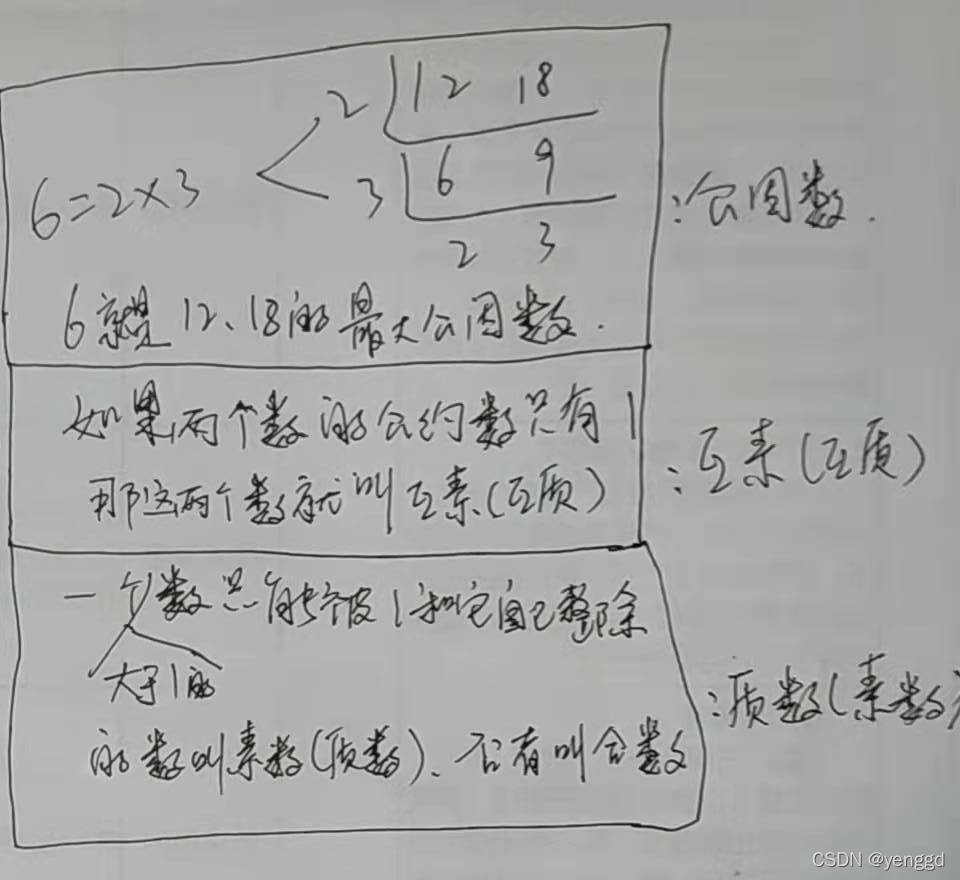 2 12 18
6=2×3 3 6 9 :公因数.
2 3
6就是12、18的最大公因数.
如果两个数的公约数只有1
那这两个数就叫互素(互质) :互素(互质)
一个数只能够被1和它自己整除
大于1的
的数叫素数(质数)、否有叫合数 :质数(素数)
CSDN @yenggd